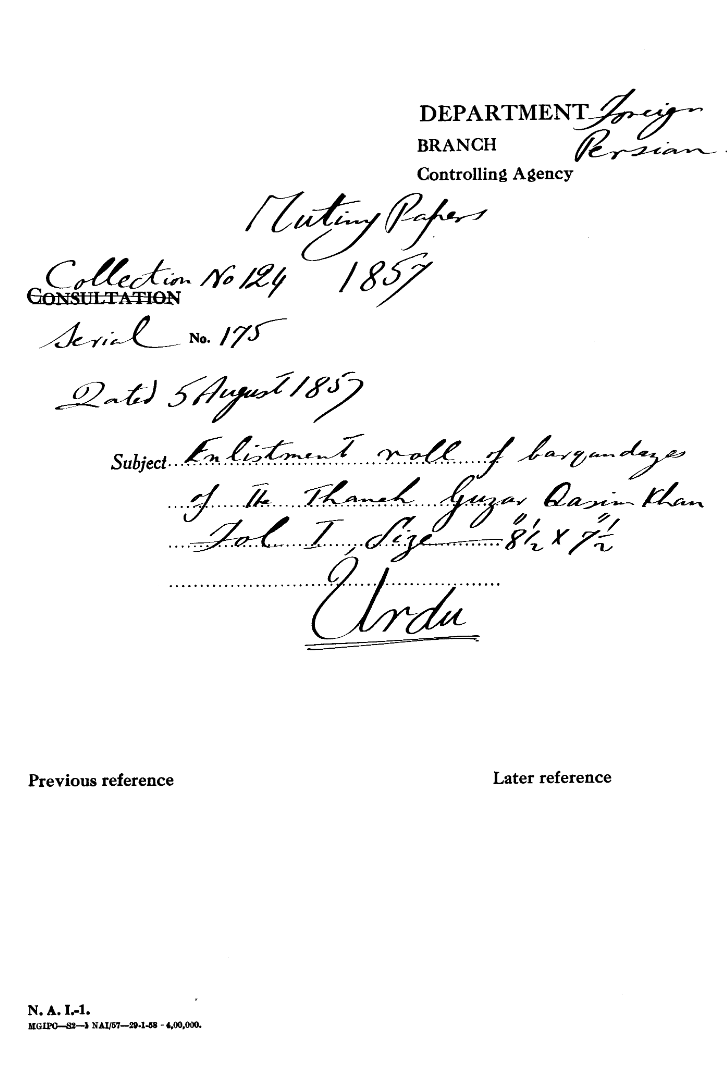 DEPARTMENT Foreign
BRANCH Persian
Controlling Agency
Mutiny Papers
Collection No 124 1857
CONSULTATION
Serial No. 175
Dated 5 August 1857
Subject Enlistment roll of barqundazes
of the Thanah Guzar Qasim Khan
Fol I, Size 8½" X 7½"
Urdu
Previous reference Later reference
N. A. I.-1.
MGIPC—S2—3 NAI/57—29-1-58 - 4,00,000.